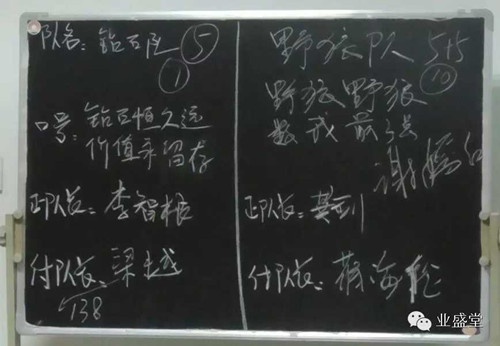 队名：钻石队 5
1
口号：钻石恒久远
价值永留存
正队长：李智根
付队长：梁越
738
野狼队 5+5
10
野狼野狼
数我最强
正队长：
付队长：
业盛堂